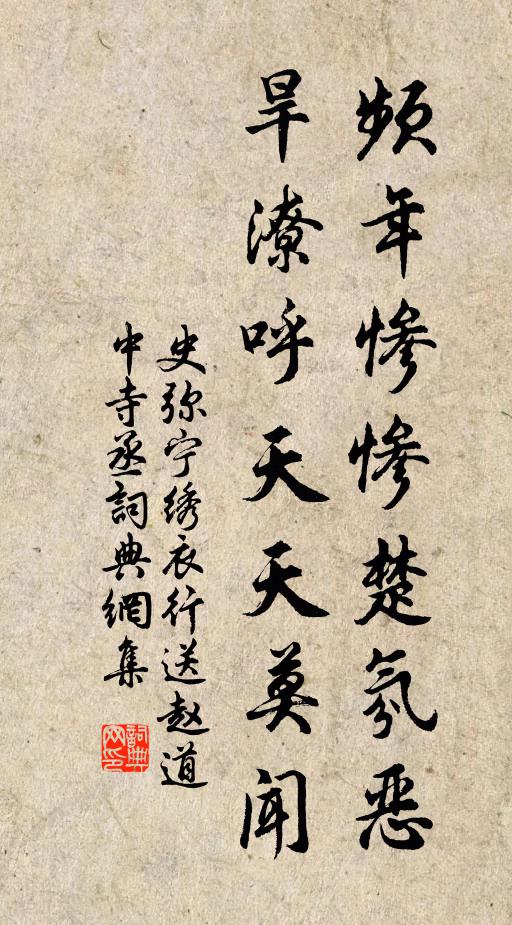 頻年惨惨楚氛恶
旱潦呼天天莫闻
史弥宁绣衣行送赵道
中寺丞詞典網集
詞典网印